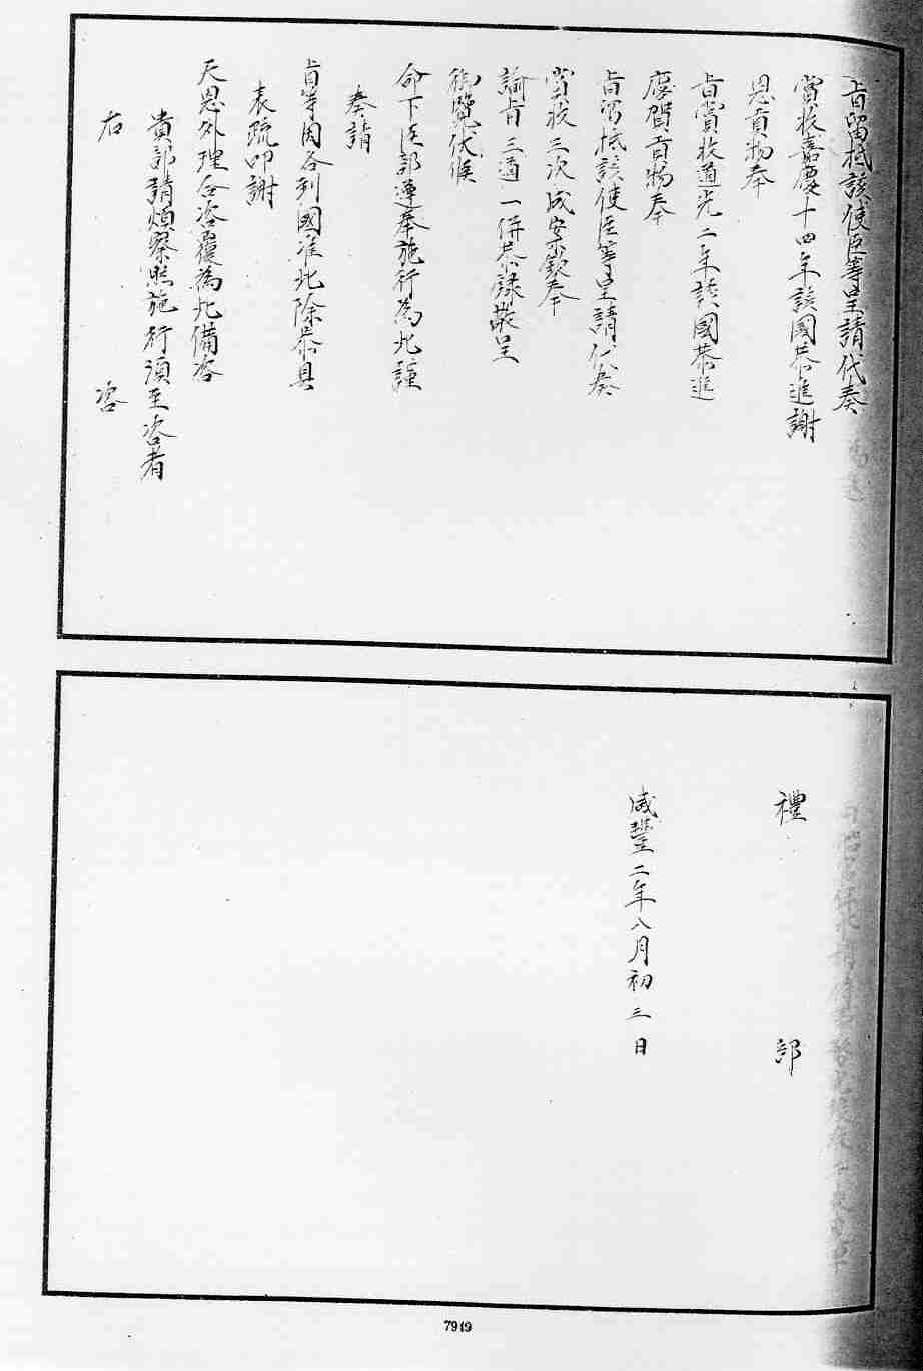 旨留抵該使臣等呈請代奏
賞收嘉慶十四年該國恭進謝
恩貢物奉
旨賞收道光二年該國恭進
慶賀貢物奉
旨留抵該使臣等呈請代奏
賞收三次成案示欽奉
諭旨三道一併恭錄敬呈
御覽伏候
命下臣部遵奉施行為此謹
奏請
旨等因各到國准此除恭具
表疏叩謝
天恩外理合咨覆為此備咨
貴部請煩察照施行須至咨者
右 咨
禮 部
咸豐二年八月初三日
7949